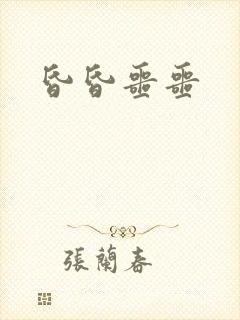 昏昏噩噩
張蘭春